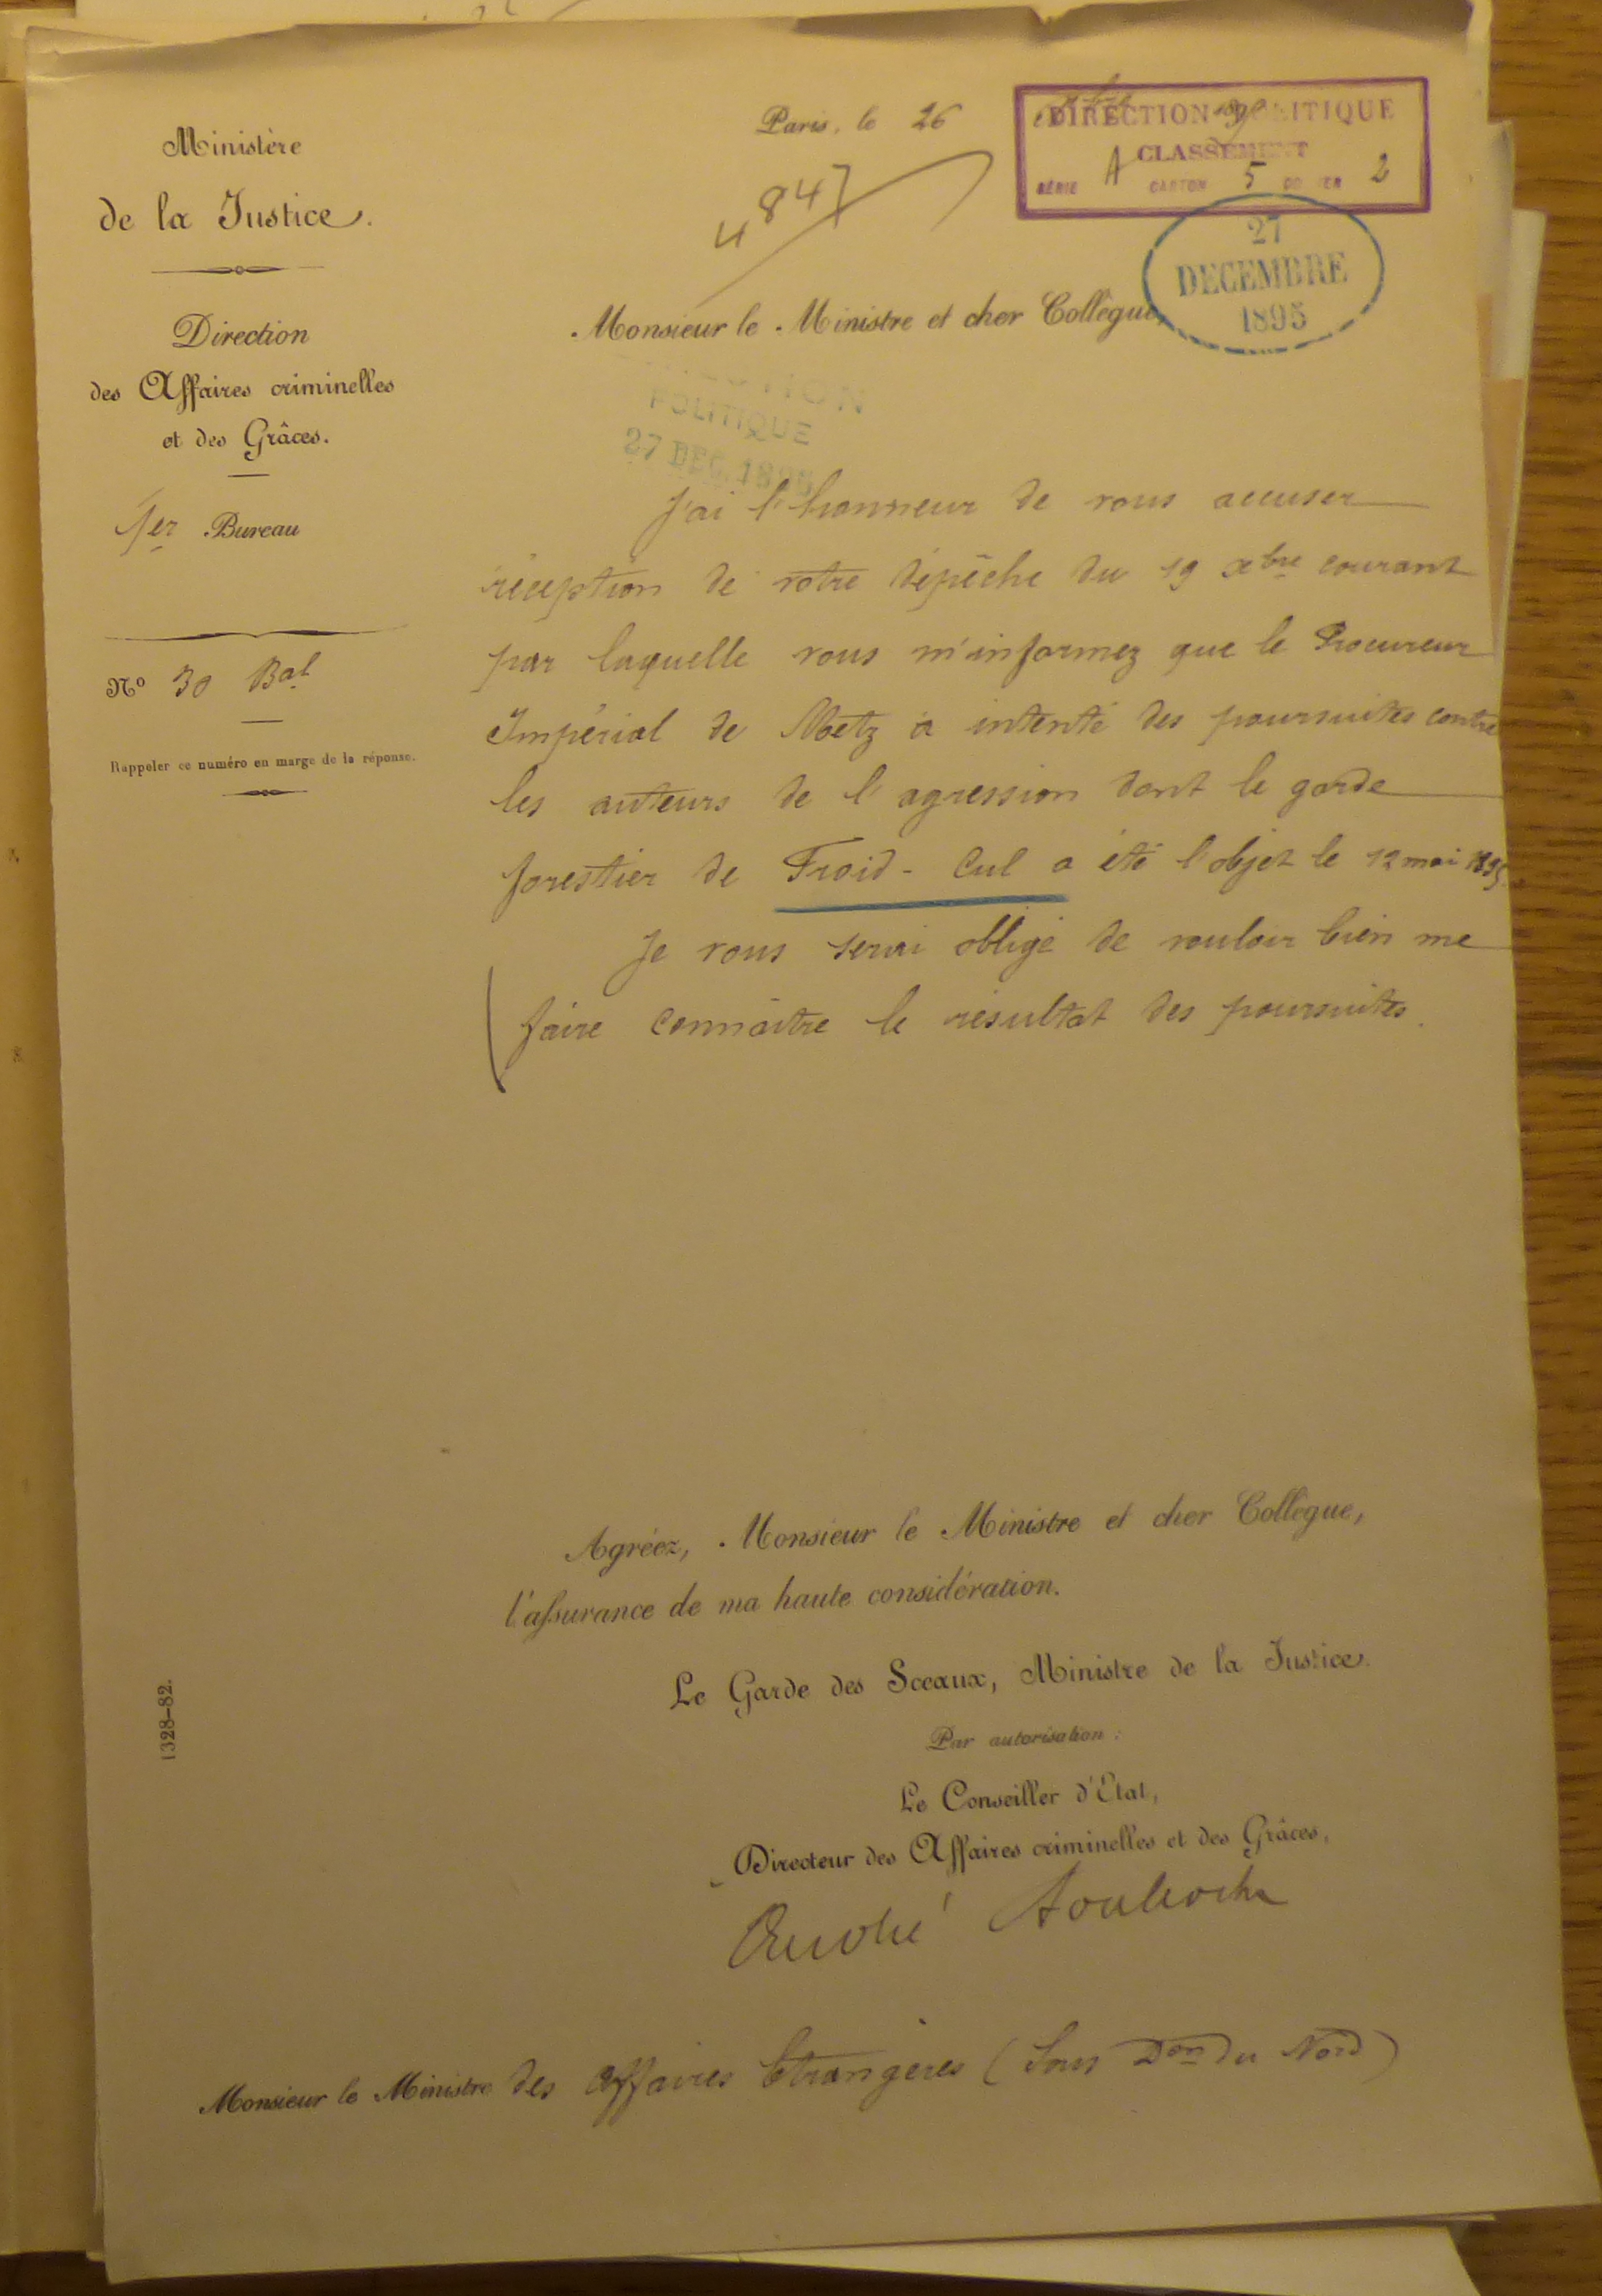 Ministère
de la Justice.
Direction
des Affaires criminelles
et des Grâces.
1er Bureau
No 30 Bal
Rappeler ce numéro en marge de la réponse.
Paris, le 26 xbre 189
DIRECTION POLITIQUE
CLASSEMENT
SÉRIE A CARTON 5 DOSSIER 2
4847
27
DECEMBRE
1895
Monsieur le Ministre et cher Collègue,
POLITIQUE
27 DEC. 1895
J'ai l'honneur de vous accuser
réception de votre dépêche du 19 xbre courant
par laquelle vous m'informez que le Procureur
Impérial de Metz a intenté des poursuites contre
les auteurs de l'agression dont le garde
forestier de Froid-Cul a été l'objet le 12 mai 1895
Je vous serai obligé de vouloir bien me
faire connaître le résultat des poursuites.
Agréez, Monsieur le Ministre et cher Collègue,
l'assurance de ma haute considération.
Le Garde des Sceaux, Ministre de la Justice.
Par autorisation :
Le Conseiller d'Etat,
Directeur des Affaires criminelles et des Grâces,
1328-82.
Monsieur le Ministre des Affaires Etrangères (Sous Don du Nord)